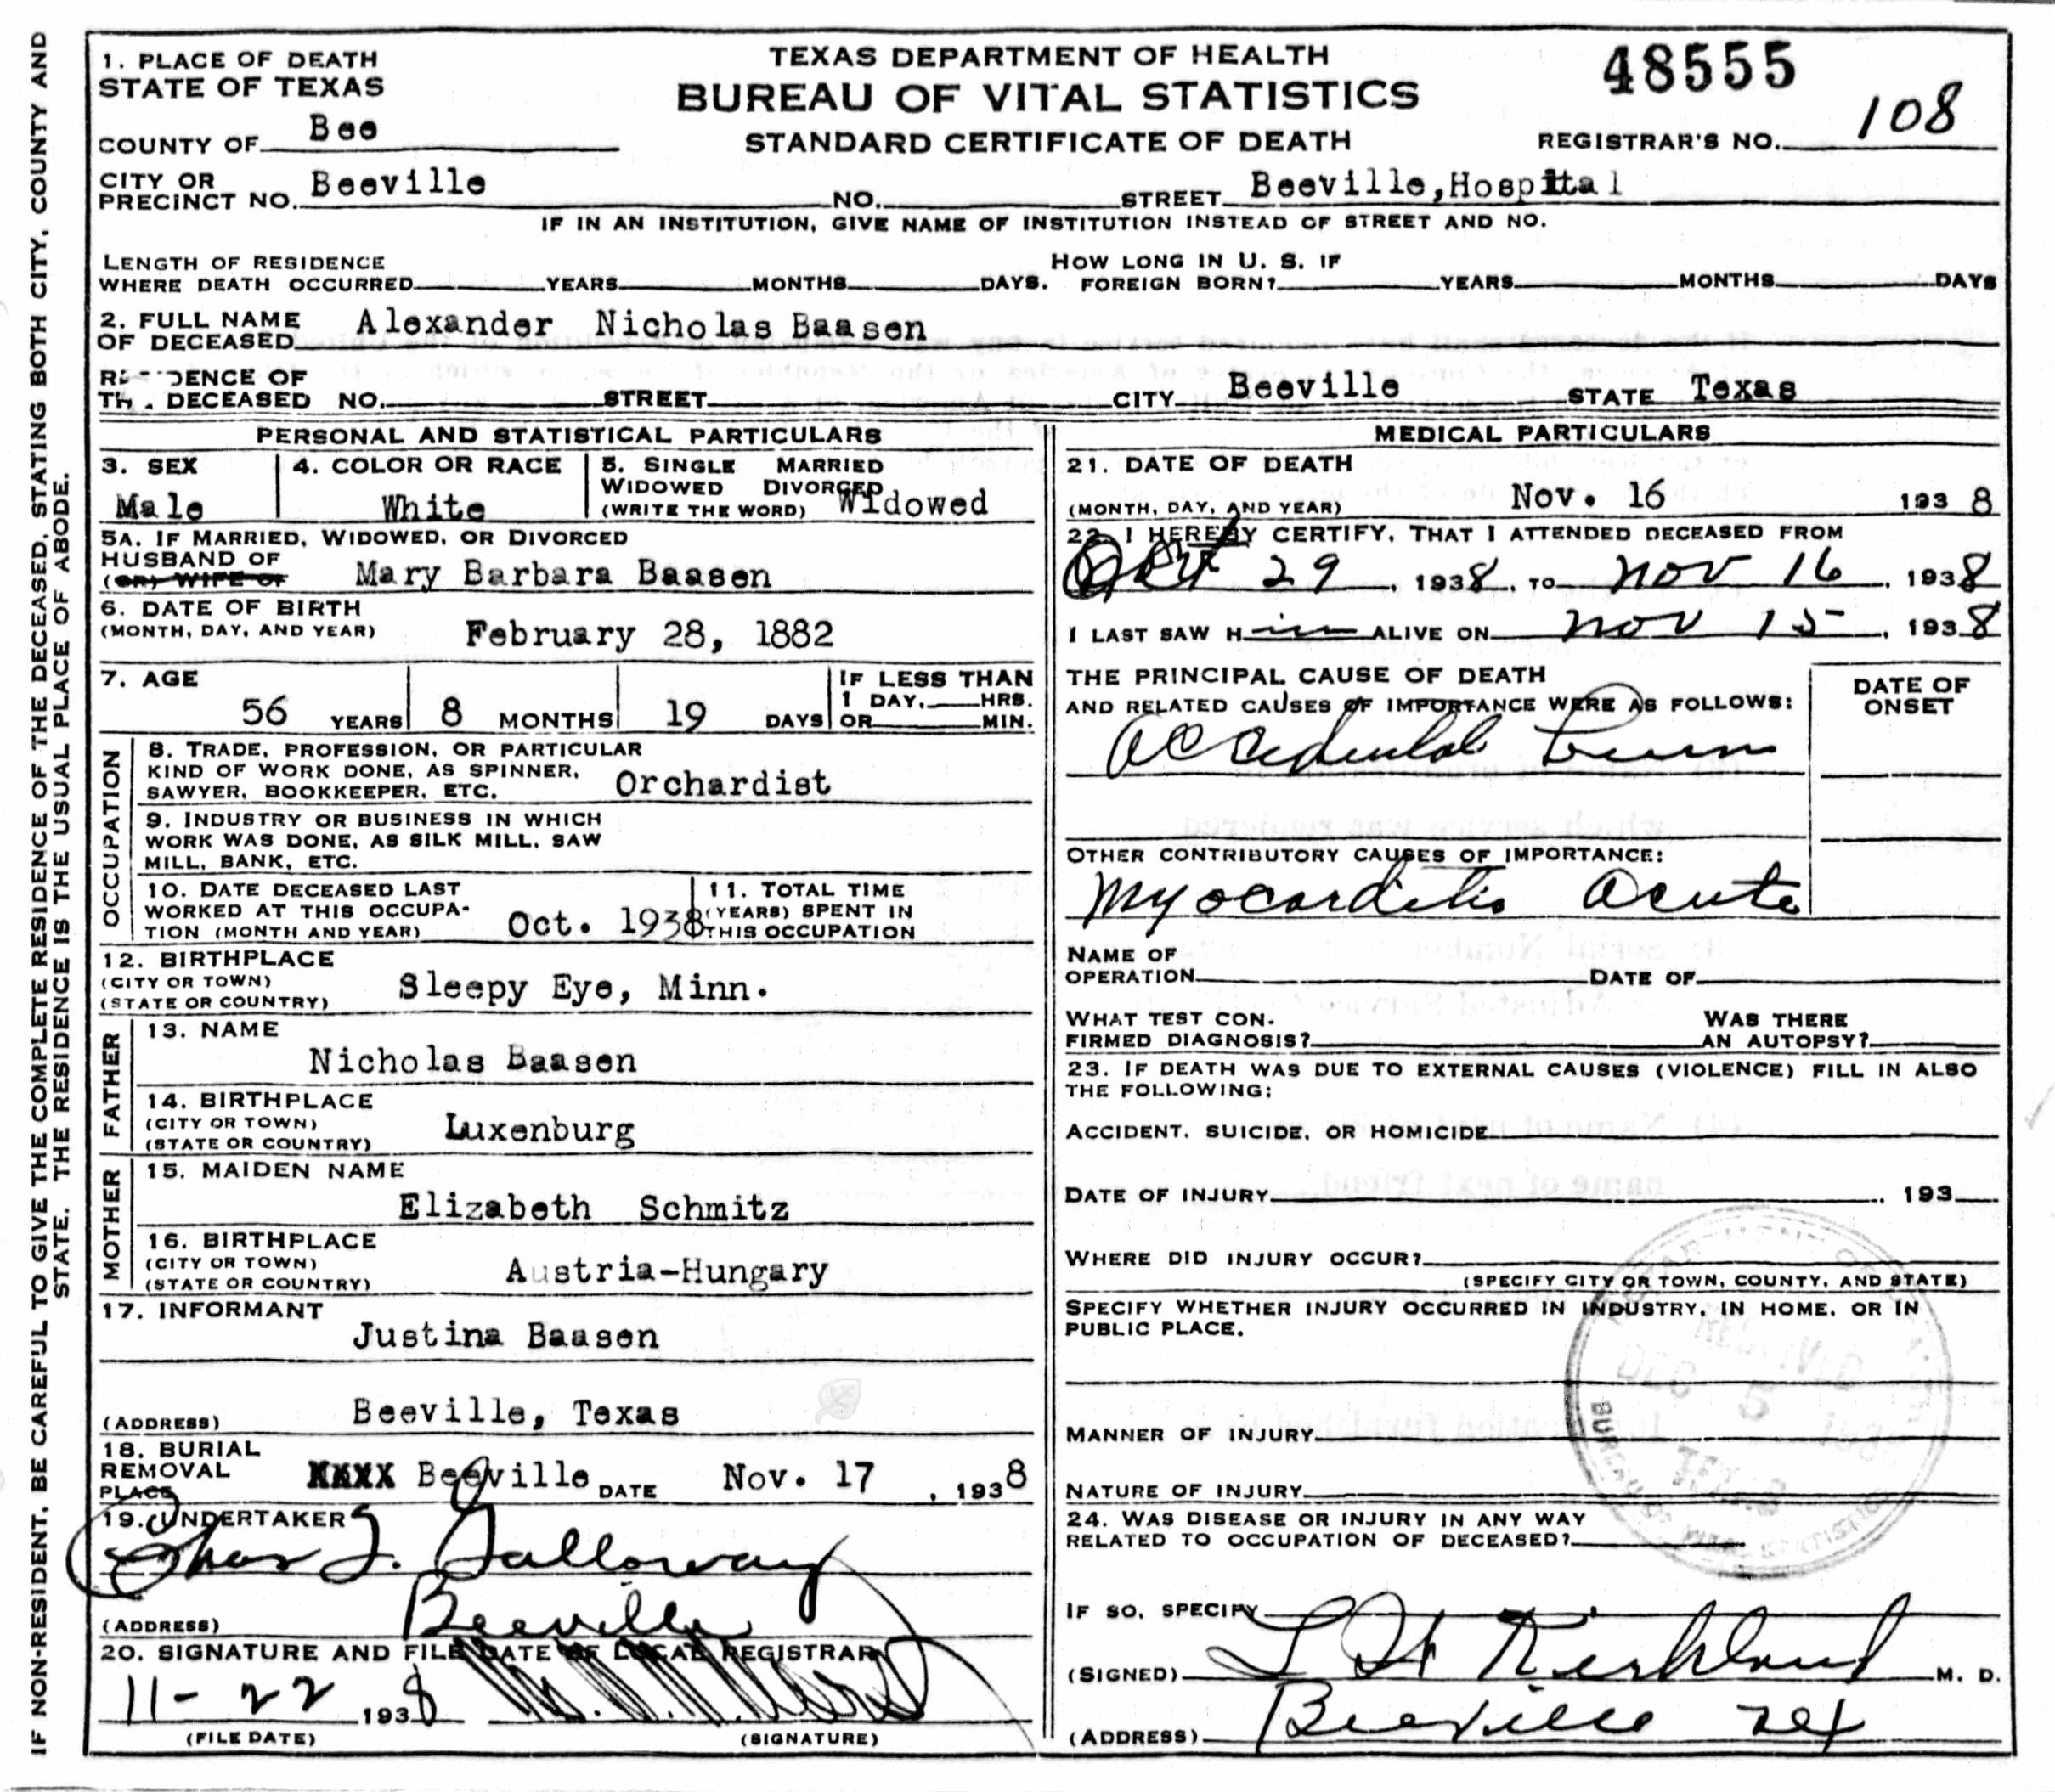 IF NON-RESIDENT, BE CAREFUL TO GIVE THE COMPLETE RESIDENCE OF THE DECEASED, STATING BOTH CITY, COUNTY AND
STATE. THE RESIDENCE IS THE USUAL PLACE OF ABODE.
1. PLACE OF DEATH
STATE OF TEXAS
TEXAS DEPARTMENT OF HEALTH
BUREAU OF VITAL STATISTICS
STANDARD CERTIFICATE OF DEATH
48555
COUNTY OF Bee
REGISTRAR'S NO. 108
CITY OR
PRECINCT NO. Beeville NO. STREET Beeville,Hospital
IF IN AN INSTITUTION, GIVE NAME OF INSTITUTION INSTEAD OF STREET AND NO.
LENGTH OF RESIDENCE
WHERE DEATH OCCURRED YEARS MONTHS DAYS.
HOW LONG IN U. S. IF
FOREIGN BORN? YEARS MONTHS DAYS
2. FULL NAME
OF DECEASED Alexander Nicholas Baasen
RESIDENCE OF
THE DECEASED NO. STREET CITY Beeville STATE Texas
PERSONAL AND STATISTICAL PARTICULARS
3. SEX
Male
4. COLOR OR RACE
White
5. SINGLE MARRIED
WIDOWED DIVORCED
(WRITE THE WORD) Widowed
5A. IF MARRIED, WIDOWED, OR DIVORCED
HUSBAND OF
(OR) WIFE OF Mary Barbara Baasen
6. DATE OF BIRTH
(MONTH, DAY, AND YEAR) February 28, 1882
7. AGE
56 YEARS 8 MONTHS 19 DAYS
IF LESS THAN
1 DAY, HRS.
OR MIN.
OCCUPATION
8. TRADE, PROFESSION, OR PARTICULAR
KIND OF WORK DONE, AS SPINNER,
SAWYER, BOOKKEEPER, ETC. Orchardist
9. INDUSTRY OR BUSINESS IN WHICH
WORK WAS DONE, AS SILK MILL, SAW
MILL, BANK, ETC.
10. DATE DECEASED LAST
WORKED AT THIS OCCUPA-
TION (MONTH AND YEAR) Oct. 1938
11. TOTAL TIME
(YEARS) SPENT IN
THIS OCCUPATION
12. BIRTHPLACE
(CITY OR TOWN)
(STATE OR COUNTRY) Sleepy Eye, Minn.
FATHER
13. NAME
Nicholas Baasen
14. BIRTHPLACE
(CITY OR TOWN)
(STATE OR COUNTRY) Luxenburg
MOTHER
15. MAIDEN NAME
Elizabeth Schmitz
16. BIRTHPLACE
(CITY OR TOWN)
(STATE OR COUNTRY) Austria-Hungary
17. INFORMANT
Justina Baasen
(ADDRESS) Beeville, Texas
18. BURIAL
REMOVAL
PLACE Beeville DATE Nov. 17, 1938
19. UNDERTAKER
Chas J. Galloway
(ADDRESS) Beeville
20. SIGNATURE AND FILE DATE OF LOCAL REGISTRAR
11-22 1938
(FILE DATE) (SIGNATURE)
MEDICAL PARTICULARS
21. DATE OF DEATH
(MONTH, DAY, AND YEAR) Nov. 16 1938
22. I HEREBY CERTIFY, THAT I ATTENDED DECEASED FROM
Oct 29, 1938, TO Nov 16, 1938
I LAST SAW Him ALIVE ON Nov 15, 1938
THE PRINCIPAL CAUSE OF DEATH
AND RELATED CAUSES OF IMPORTANCE WERE AS FOLLOWS:
DATE OF
ONSET
Accidental Burn
OTHER CONTRIBUTORY CAUSES OF IMPORTANCE:
Myocarditis Acute
NAME OF
OPERATION DATE OF
WHAT TEST CON-
FIRMED DIAGNOSIS?
WAS THERE
AN AUTOPSY?
23. IF DEATH WAS DUE TO EXTERNAL CAUSES (VIOLENCE) FILL IN ALSO
THE FOLLOWING:
ACCIDENT, SUICIDE, OR HOMICIDE
DATE OF INJURY , 193
WHERE DID INJURY OCCUR?
(SPECIFY CITY OR TOWN, COUNTY, AND STATE)
SPECIFY WHETHER INJURY OCCURRED IN INDUSTRY, IN HOME, OR IN
PUBLIC PLACE.
MANNER OF INJURY
NATURE OF INJURY
24. WAS DISEASE OR INJURY IN ANY WAY
RELATED TO OCCUPATION OF DECEASED?
IF SO, SPECIFY
(SIGNED) L H Kirkland M. D.
(ADDRESS) Beeville Tex
DEC 5
TEXAS